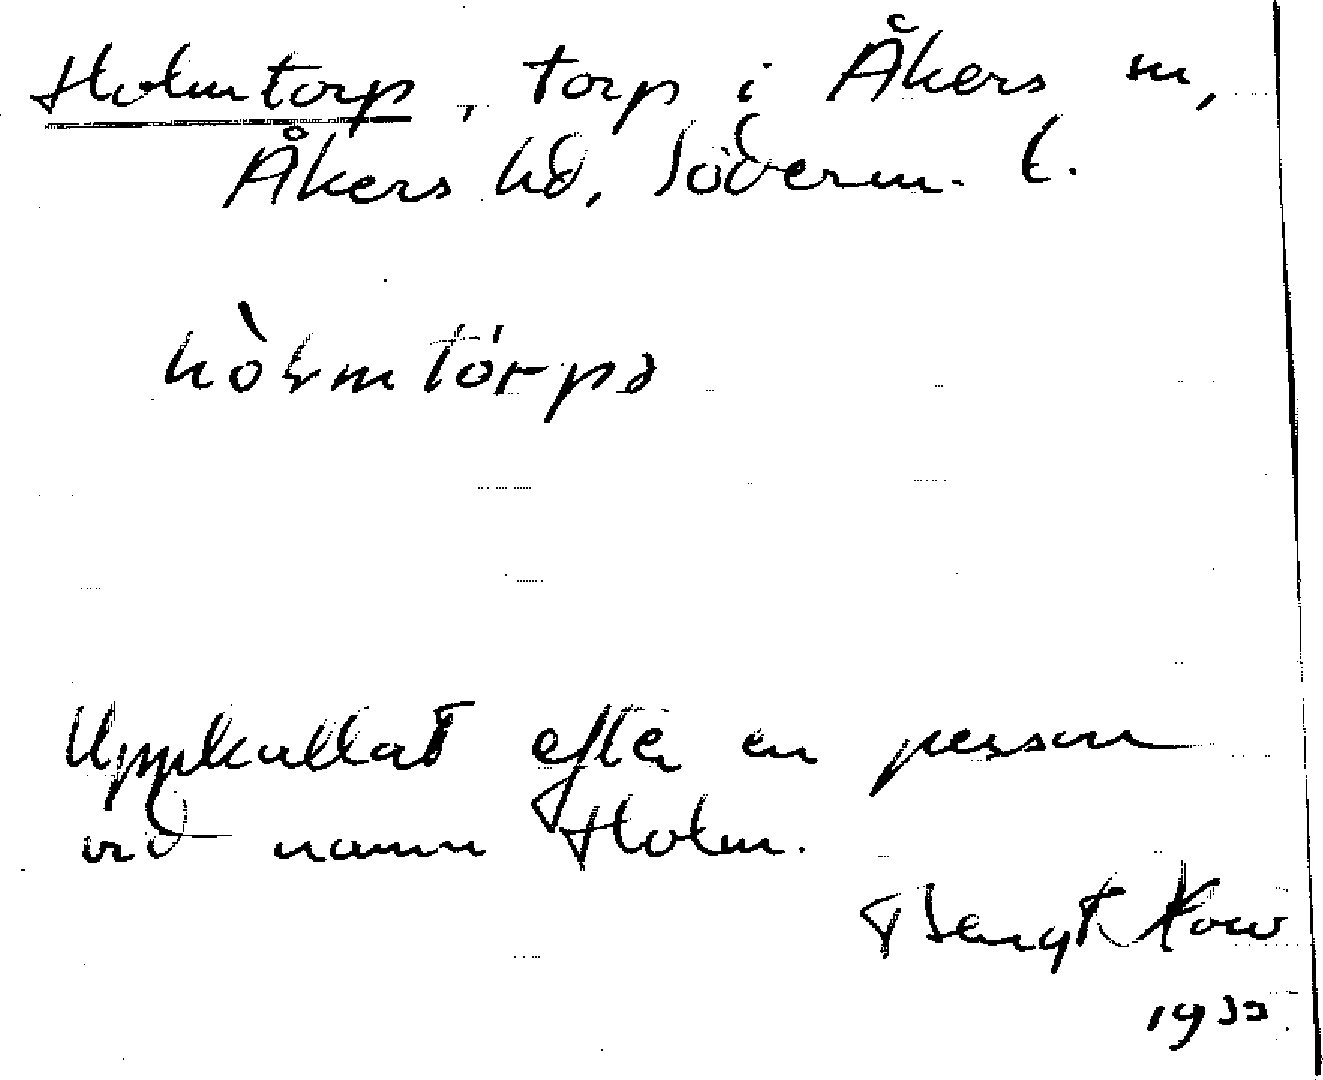 Holmtorp, torp i Åkers sn,
Åkers hd, Söderm. l.
hòlmtórpə
Uppkallat efter en person
vid namn Holm.
Bengt